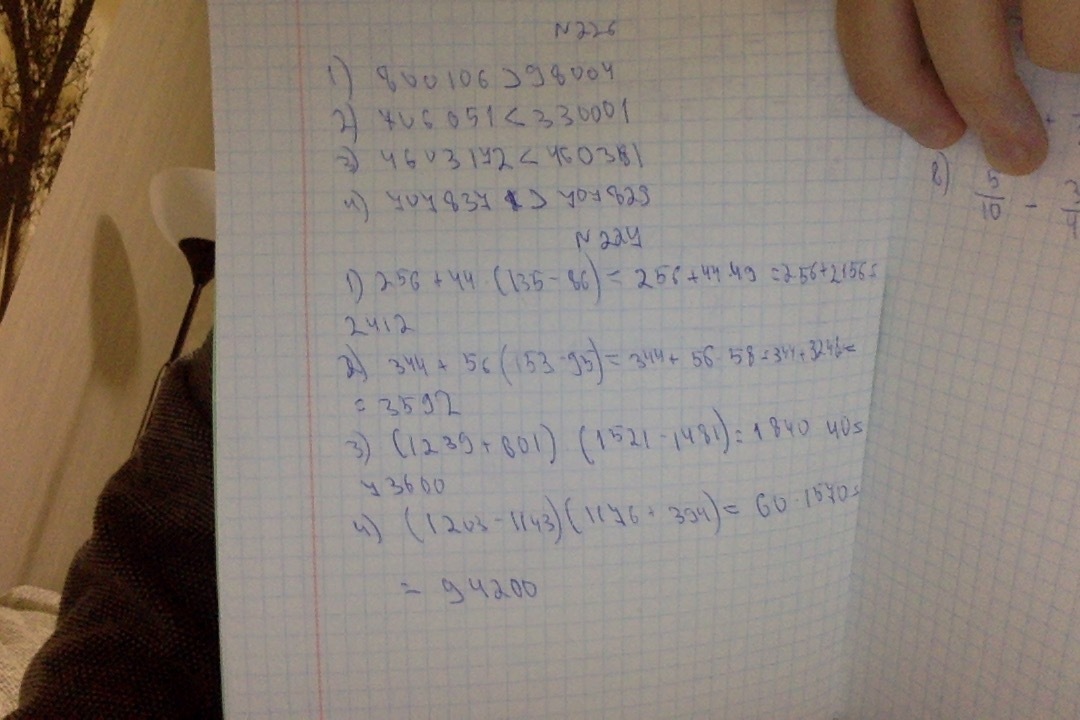 N226
1) 800106 > 98004
2) 706051 < 330001
3) 4603172 < 460381
4) 707837 > 707829
N227
1) 256 + 44 (135 - 86) = 256 + 44 · 49 = 256 + 2156 =
2412
2) 344 + 56 (153 - 95) = 344 + 56 · 58 = 344 + 3248 =
= 3592
3) (1239 + 601) (1521 - 1481) = 1840 40 =
73600
4) (1203 - 1143)(1176 + 394) = 60 · 1570 =
= 94200
8) 5/10 - 3/4